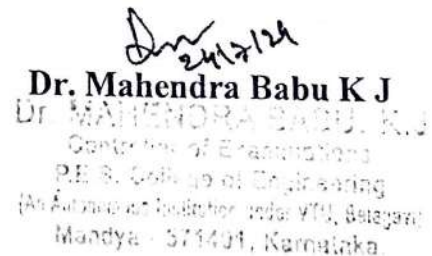 24/7/24
Dr. Mahendra Babu K J
Dr. MAHENDRA BABU. K.J
Controller of Examinations
P.E.S. College of Engineering
(An Autonomous Institution under VTU, Belagavi)
Mandya - 571401, Karnataka